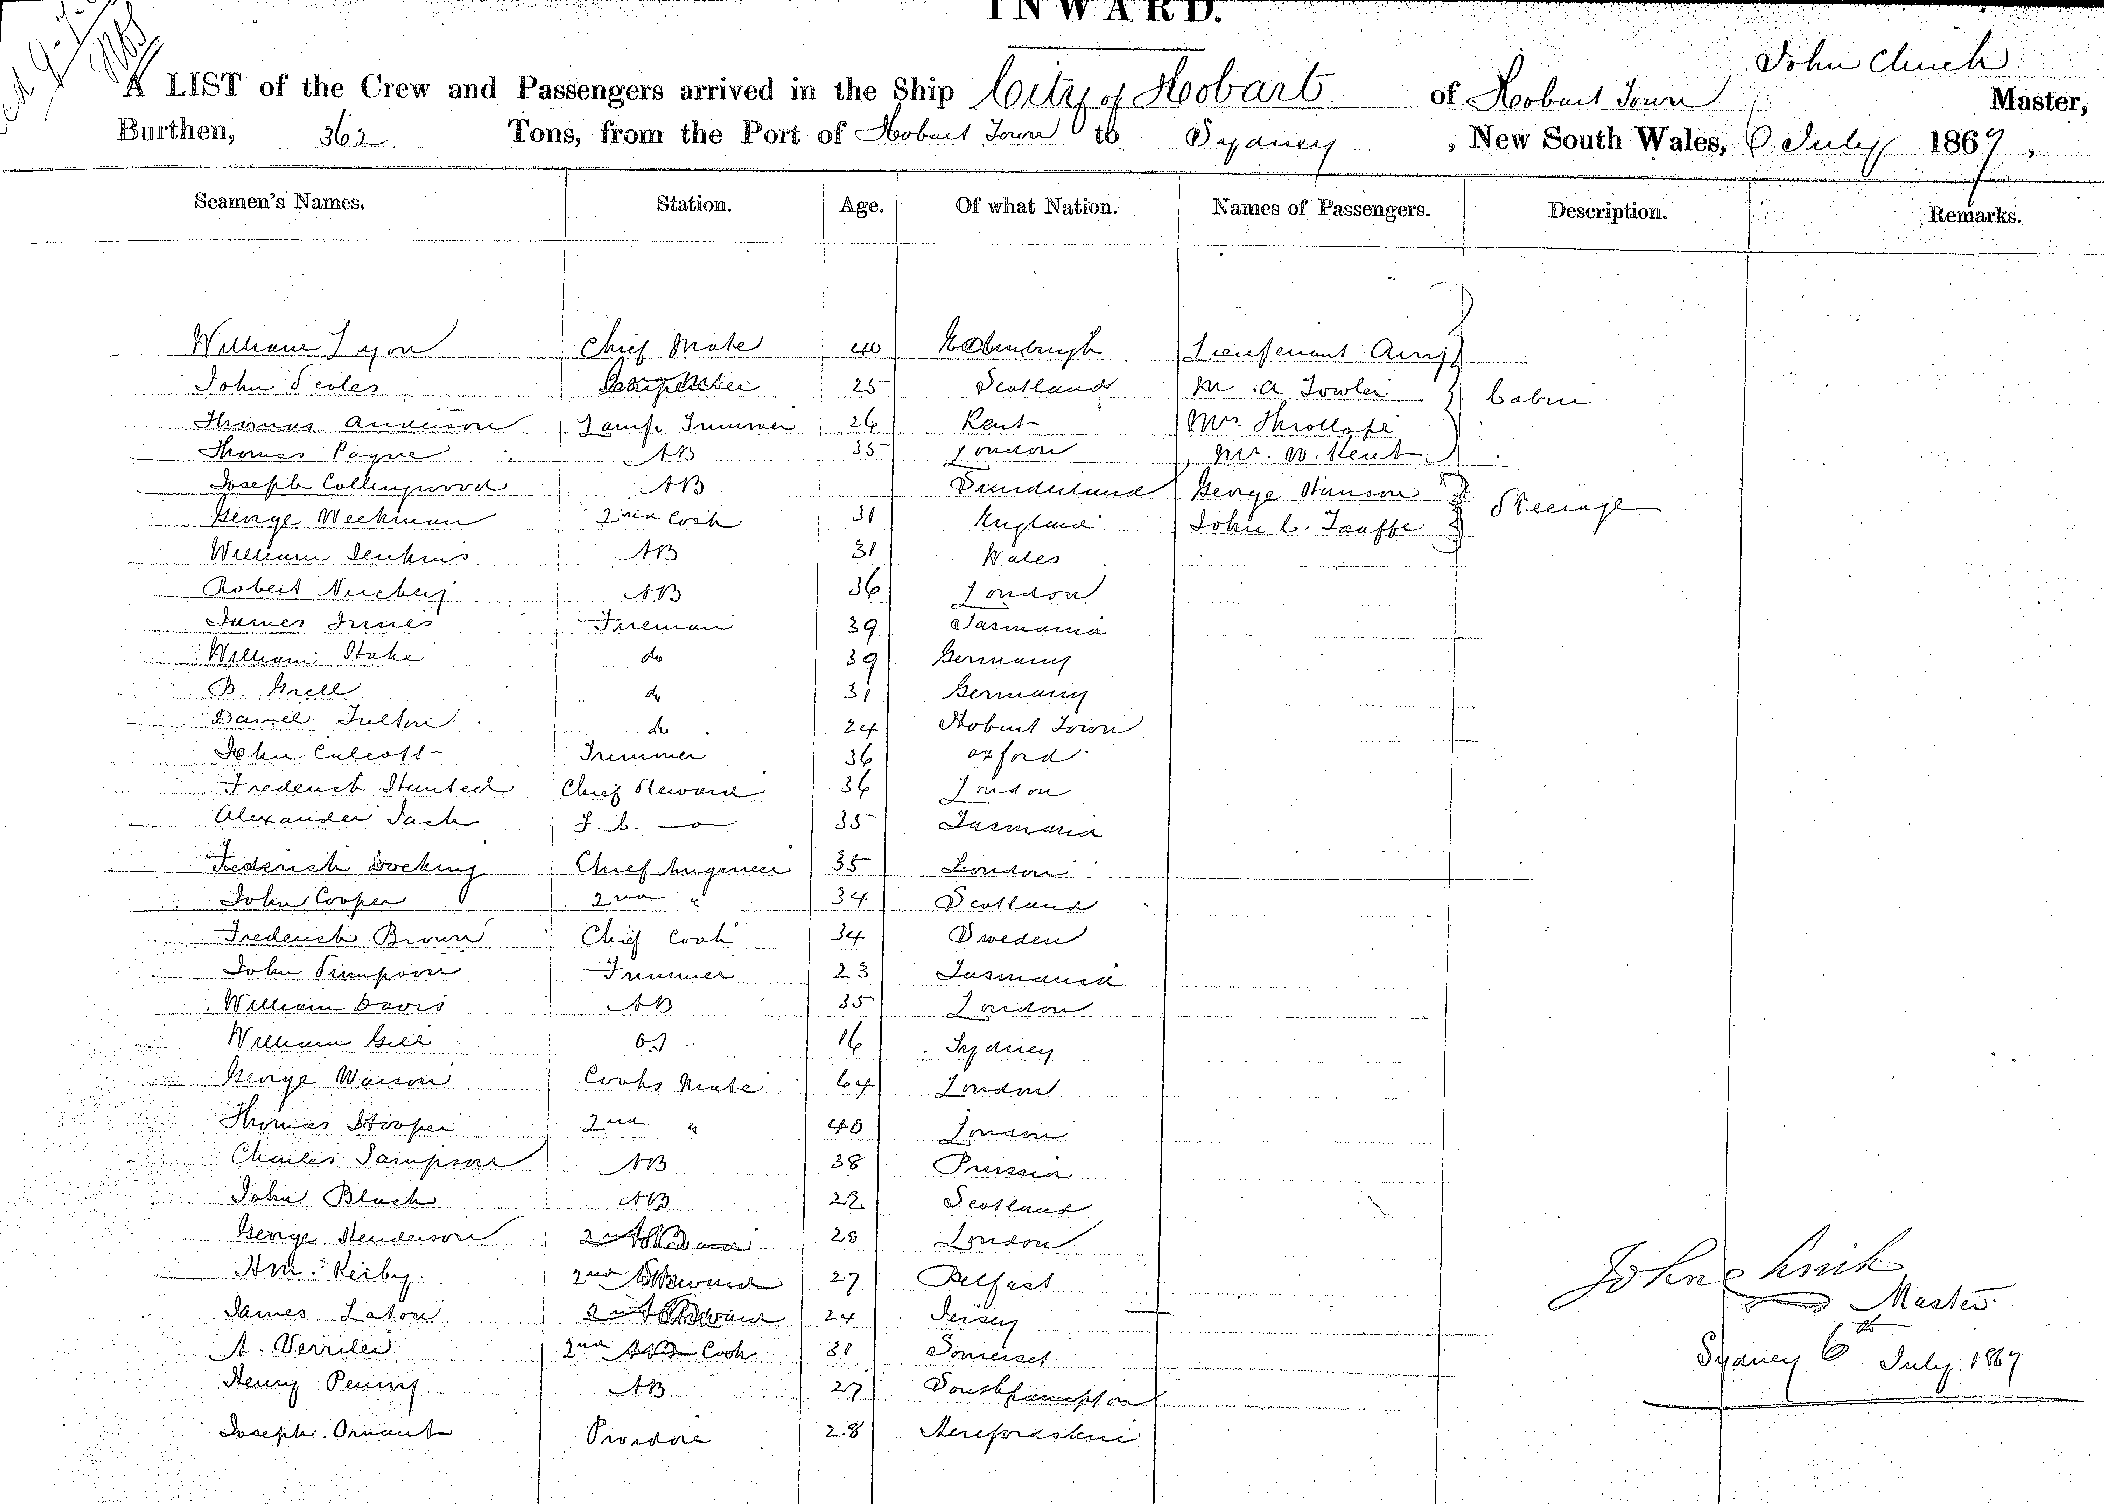 INWARD.
John Clinch
A LIST of the Crew and Passengers arrived in the Ship City of Hobart of Hobart Town Master,
Burthen, 362 Tons, from the Port of Hobart Town to Sydney, New South Wales, 6 July 1867.
Seamen's Names. Station. Age. Of what Nation. Names of Passengers. Description. Remarks.
William Lyon Chief Mate 40 Edinburgh Lieutenant
John Scoles Carpenter 25 Scotland M. A. Fowler Cabin
Thomas Anderson Lamp Trimmer 26 Kent Mrs
Thomas Payne AB 35 London Mr. W. Kent
Joseph Collingwood AB Sunderland George Hanson Steerage
George Weekman 2nd Cook 31 England John C. Taaffe
William Jenkins AB 31 Wales
Robert AB 36 London
James Innes Fireman 39 Tasmania
William Hake do 39 Germany
B. Grell do 31 Germany
Daniel Fulton do 24 Hobart Town
John Calcott Trimmer 36 Oxford
Frederick Chief Steward 36 London
Alexander Jack F. C. — 35 Tasmania
Frederick Docking Chief Engineer 35 London
John Cooper 2nd " 34 Scotland
Frederick Brown Chief Cook 34 Sweden
John Simpson Trimmer 23 Tasmania
William Davis AB 35 London
William Gill OS 16 Sydney
George Watson Cooks Mate 64 London
Thomas Hooper 2nd " 40 London
Charles Sampson AB 38 Prussia
John Black AB 22 Scotland
George Henderson 28 London
Wm. Kirby 2nd Steward 27 Belfast
James Laton 24 Jersey
A. Verriler 2nd AB Cook 31 Somerset
Henry Penny AB 27 Southhampton
Joseph Ornant Providore 28 Herefordshire
John Clinch
Master
Sydney 6th July 1867